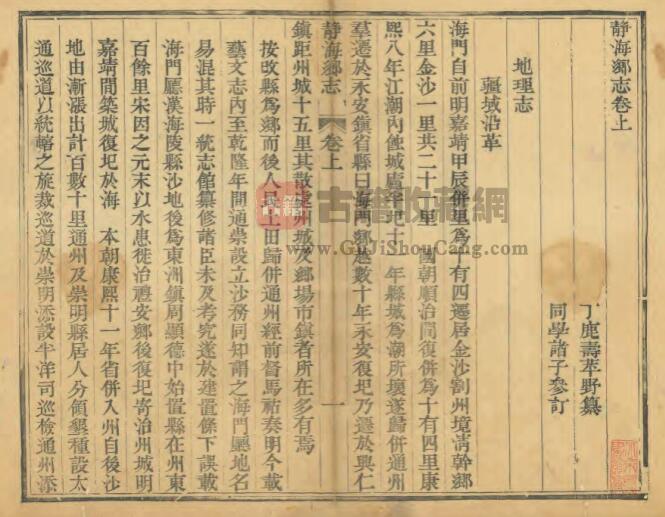 靜海鄉志卷上
丁鹿壽苹野纂
同學諸子參訂
地理志
疆域沿革
海門自前明嘉靖甲辰併里爲十有四遷居金沙割州境淸幹鄉
六里金沙一里共二十一里 國朝順治間復併爲十有四里康
熙八年江潮內蝕城廬半圮十一年縣城爲潮所壞遂歸併通州
羣遷於永安鎭省縣曰海門鄉越數十年永安復圮乃遷於興仁
靜海鄉志 卷上 一
鎭距州城十五里其散處州城及鄉場市鎭者所在多有焉
按改縣爲鄉而後人民土田歸併通州經前督馬祜奏明今載
藝文志內至乾隆年間通崇設立沙務同知謂之海門廳地名
易混其時一統志館纂修諸臣未及考究遂於建置條下誤載
海門廳漢海陵縣沙地後爲東洲鎭周顯德中始置縣在州東
百餘里宋因之元末以水患徙治禮安鄉後復圮寄治州城明
嘉靖間築城復圮於海 本朝康熙十一年省併入州自後沙
地由漸漲出計百數十里通州及崇明縣居人分領墾種設太
通巡道以統轄之旋裁巡道於崇明添設半洋司巡檢通州添
古籍收藏網
www.GuJiShouCang.com